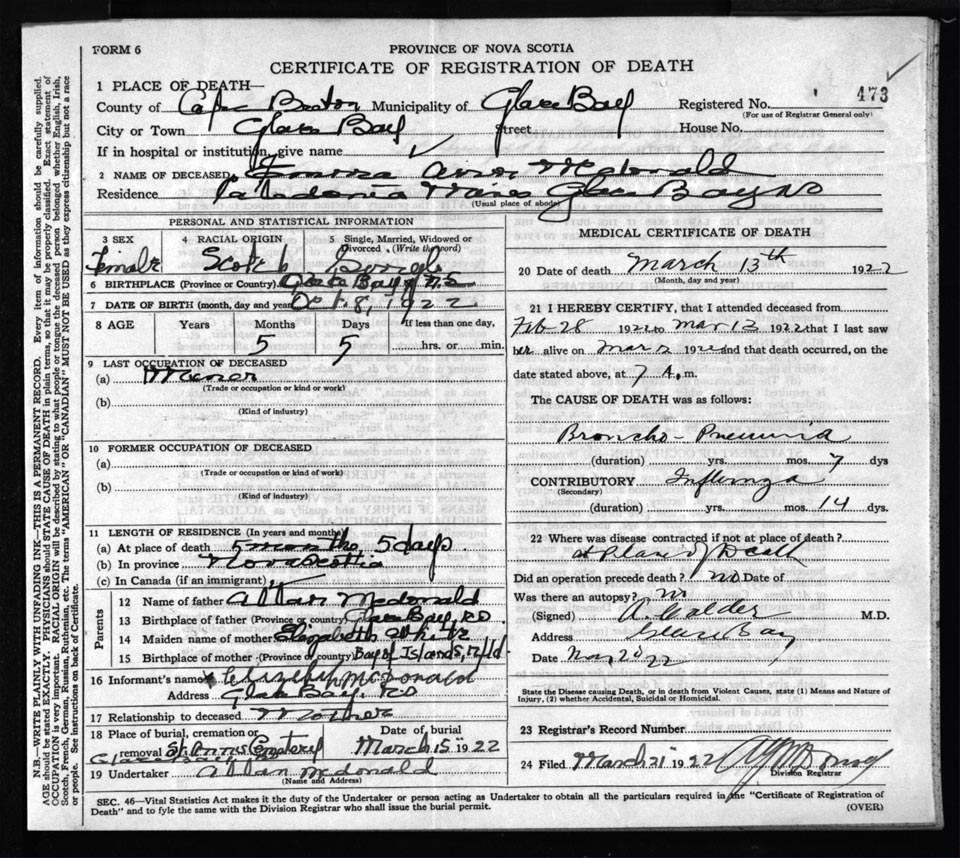 FORM 6
PROVINCE OF NOVA SCOTIA
CERTIFICATE OF REGISTRATION OF DEATH
1 PLACE OF DEATH—
County of Cape Breton Municipality of Glace Bay Registered No. 473
(For use of Registrar General only)
City or Town Glace Bay Street House No.
If in hospital or institution, give name
2 NAME OF DECEASED Ann McDonald
Residence Caledonia Mines Glace Bay NS
(Usual place of abode)
PERSONAL AND STATISTICAL INFORMATION
3 SEX 4 RACIAL ORIGIN 5 Single, Married, Widowed or Divorced. (Write the word)
Female Scotch Single
6 BIRTHPLACE (Province or Country) Glace Bay N.S
7 DATE OF BIRTH (month, day and year) Oct 8, 1922
8 AGE Years Months Days If less than one day,
5 5 hrs. or min.
9 LAST OCCUPATION OF DECEASED
(a)
(Trade or occupation or kind or work)
(b)
(Kind of industry)
10 FORMER OCCUPATION OF DECEASED
(a)
(Trade or occupation or kind of work)
(b)
(Kind of industry)
11 LENGTH OF RESIDENCE (In years and months)
(a) At place of death 5 months 5 days
(b) In province Nova Scotia
(c) In Canada (if an immigrant)
Parents
12 Name of father Allan McDonald
13 Birthplace of father (Province or country) Glace Bay,
14 Maiden name of mother Elizabeth White
15 Birthplace of mother (Province or country) Bay of Islands, Nfld.
16 Informant's name x Elizabeth McDonald
Address Glace Bay.
17 Relationship to deceased Mother
18 Place of burial, cremation or removal Date of burial
St. Anns Cemetery March 15 1922
Glace Bay
19 Undertaker Allan McDonald
(Name and Address)
MEDICAL CERTIFICATE OF DEATH
20 Date of death March 13th 1922
(Month, day and year)
21 I HEREBY CERTIFY, that I attended deceased from
Feb 28 1922 to Mar 13 1922 that I last saw
her alive on Mar 192 and that death occurred, on the
date stated above, at 7 A. m.
The CAUSE OF DEATH was as follows:
Broncho-Pneumonia
(duration) yrs. mos. 7 dys
CONTRIBUTORY Influenza
(Secondary)
(duration) yrs. mos. 14 dys.
22 Where was disease contracted if not at place of death?
at place of Death
Did an operation precede death? no Date of
Was there an autopsy? no
(Signed) A. Calder M.D.
Address Glace Bay
Date 20 22
State the Disease causing Death, or in death from Violent Causes, state (1) Means and Nature of Injury, (2) whether Accidental, Suicidal or Homicidal.
23 Registrar's Record Number
24 Filed March 21 1922
Division Registrar
SEC. 46—Vital Statistics Act makes it the duty of the Undertaker or person acting as Undertaker to obtain all the particulars required in the "Certificate of Registration of
Death" and to fyle the same with the Division Registrar who shall issue the burial permit. (OVER)
N.B.—WRITE PLAINLY WITH UNFADING INK—THIS IS A PERMANENT RECORD. Every item of information should be carefully supplied.
AGE should be stated EXACTLY. PHYSICIANS should STATE CAUSE OF DEATH in plain terms, so that it may be properly classified. Exact statement of
OCCUPATION is very important. RACIAL ORIGIN will be described by stating to what people or tongue the deceased person belonged whether English, Irish,
Scotch, French, German, Russian, Ruthenian, etc. The terms "AMERICAN" OR "CANADIAN" MUST NOT BE USED as they express citizenship but not a race
or people. See instructions on back of Certificate.